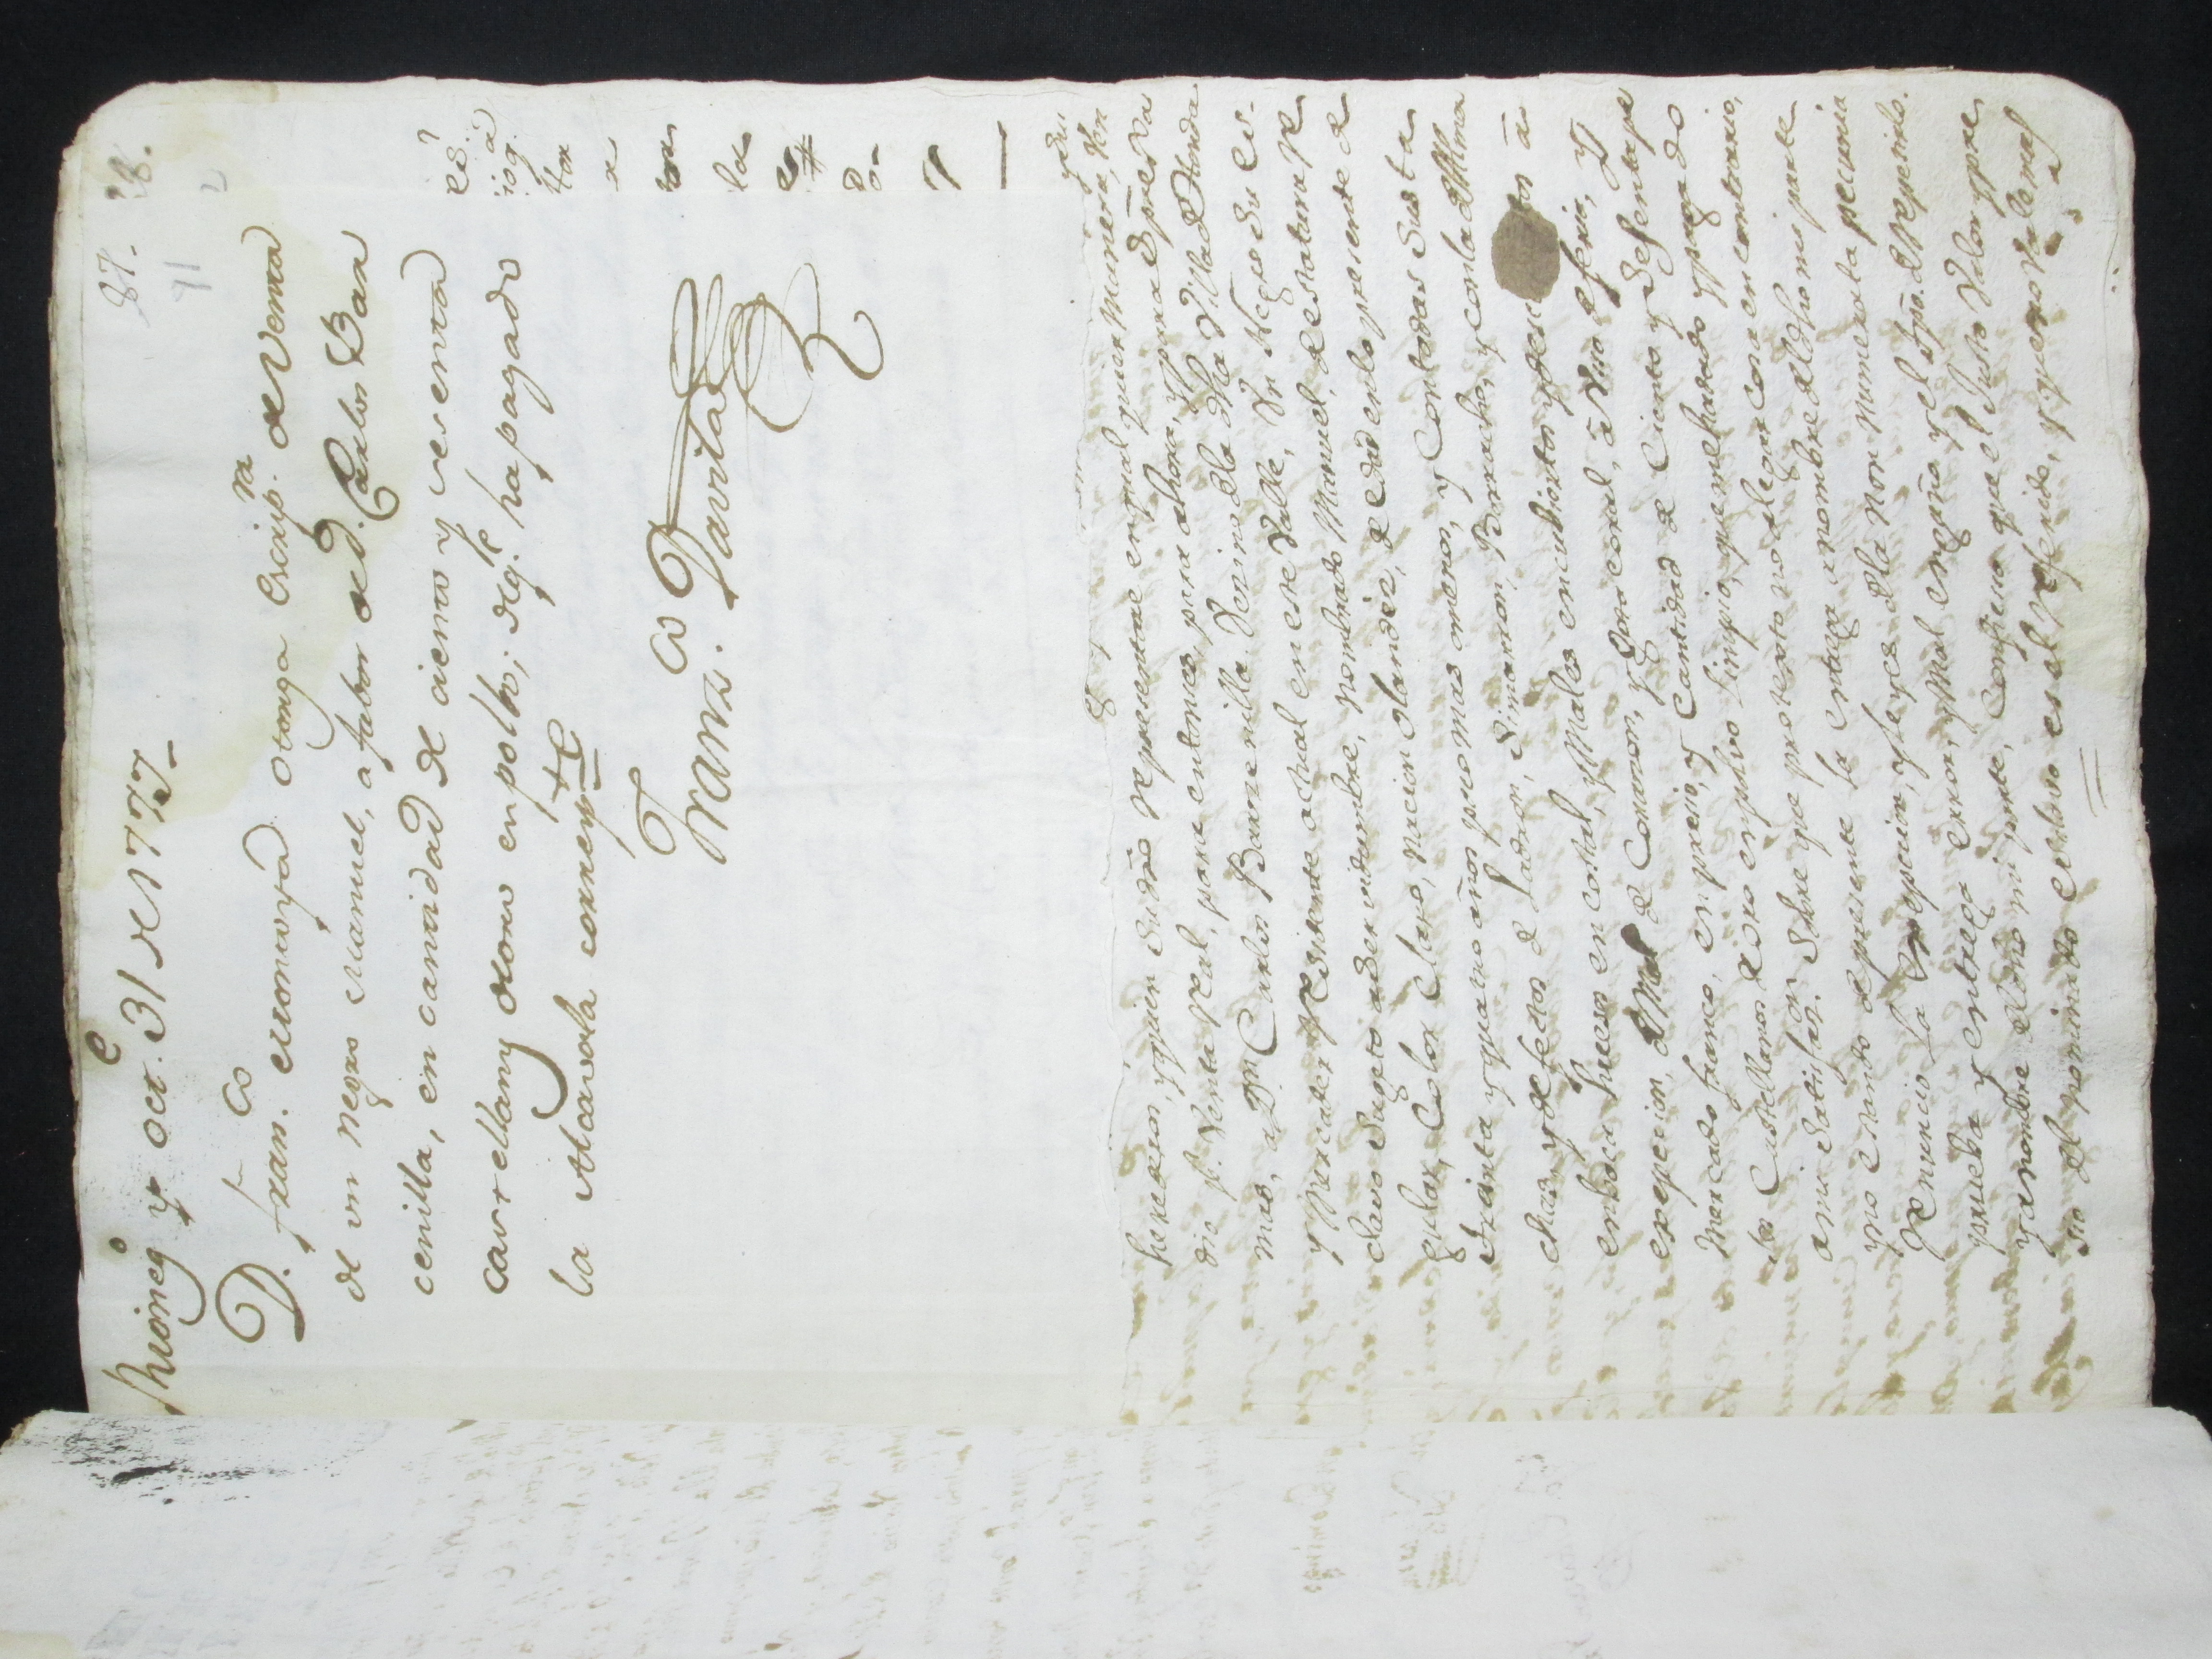 87. 
91
Rioneg.o y Oct.e 31 de 1777
D. Fran.co Montoya Otorga Escrip.ra de Venta
de un negro Manuel, a fabor de d. Carlos Bar
cenilla, en cantidad de ciento y sesenta
castellanos de oro en polbo; de q.e ha pagado
la Alcavala corresp.te
Franz.co Davila
es.
ioq.a
tor
la
es
do
y su
herederos, y quien su dro representare en qual quier Manera, Ven
dio p.r Venta Real, para entonces, para ahora, y para Spre Xa
mas, a D.n Carlos Barzenilla. Vezino de la dha Villa de Honda
y Mercader Residente actual en este Valle, Vn Negro Su Es-
clavo Sugeto a Servidumbre, nombrado Manuel, de estatura Re
gular, Color Claro, nacion olandéz, de edad en lo presente de
treinta y quatro años poco mas o menos, y Con todas Sus ta
chas, y defectos de Ladron, Simarron, Borracho, y con la de Alma
en boca huesos en costal, y Males encubiertos y tos â
exepcion, de Mal de Corazon, y gota coral, â Vso de feria, y
Mercado franco, en presio, y Cantidad de Ciento y Sesenta pe
sos Castellanos de Oro en polvo Limpio, que me ha dado y pagado
a mi Satisfaz.on Sobre que protexto no alegar Cosa en contrario,
y no estando de presente la entrega a nombre del dho mi parte
Renuncio La Exepcion, y Leyes de la Non Numerata pecunia
prueba y entrega error, y Mal engaño y el tpo. de repetirlo.
y a nombre del dho mi parte, Confiesso que el Justo Valor y pre
sio del nominado esclavo es el Referido, y que no Vale mas